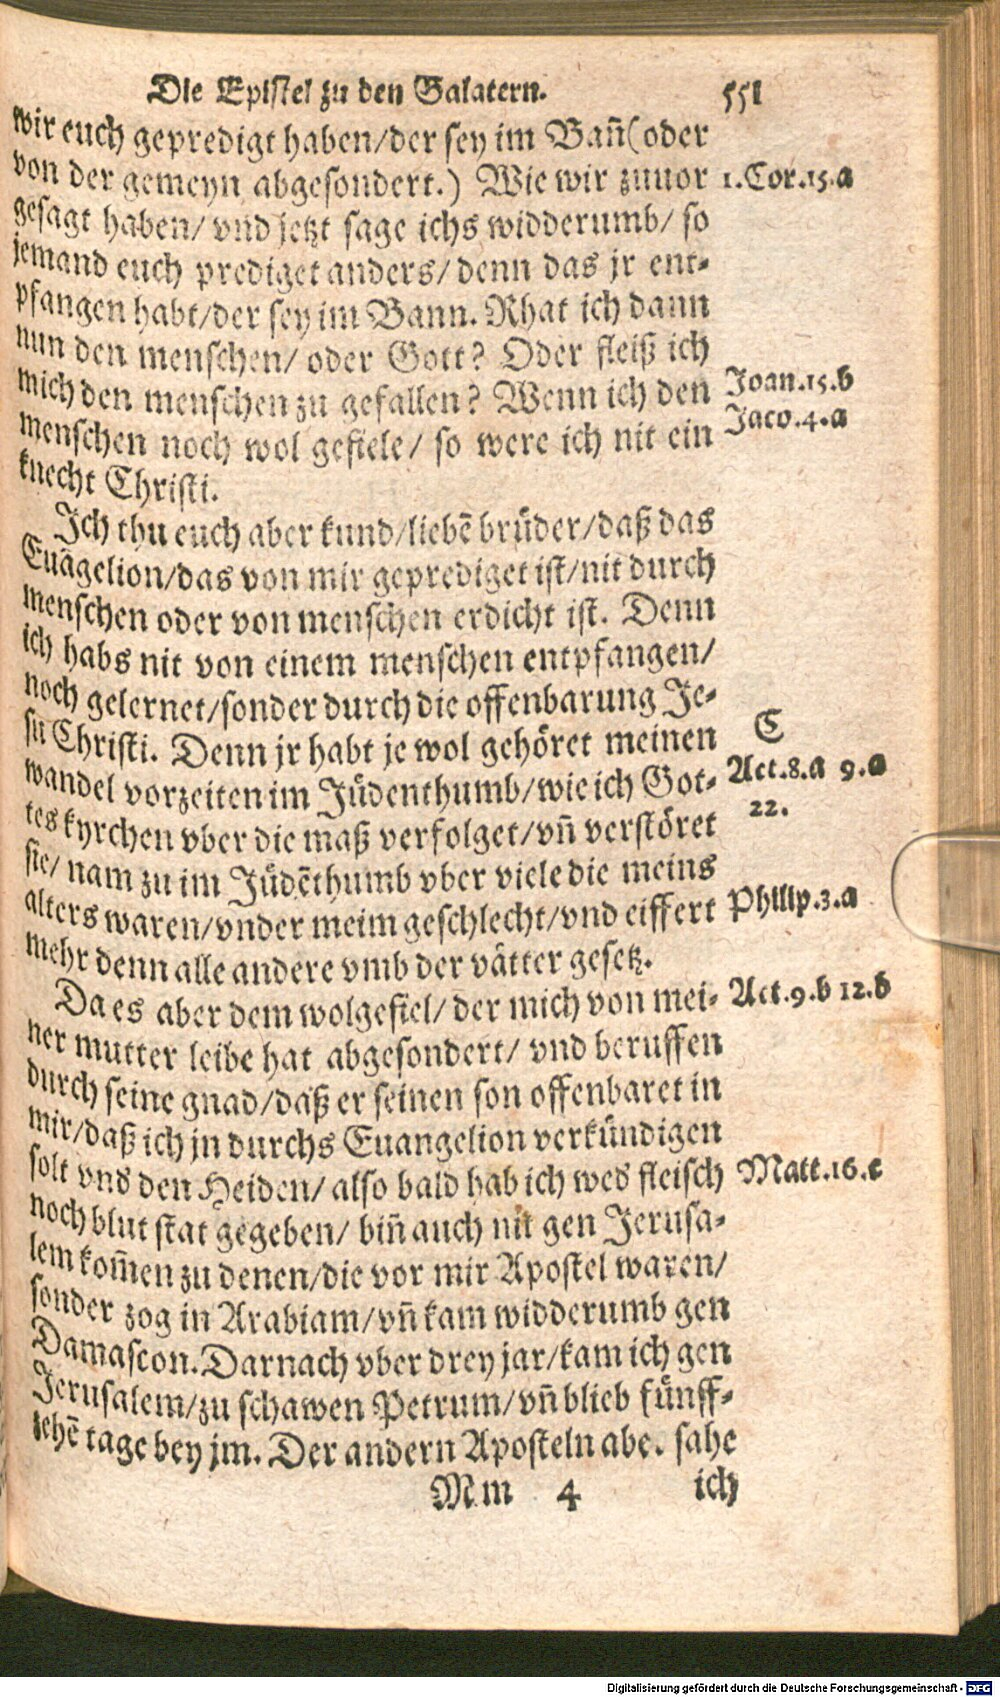 Die Epistel zu den Galatern. 551
wir euch gepredigt haben/der sey im Bañ(oder
von der gemeyn abgesondert.) Wie wir zuuor
1.Cor.15.a
gesagt haben/ vnd jetzt sage ichs widderumb/ so
jemand euch prediget anders/ denn das jr ent-
pfangen habt/der sey im Bann. Rhat ich dann
nun den menschen/ oder Gott? Oder fleiß ich
mich den menschen zu gefallen? Wenn ich den
Joan.15.b
menschen noch wol gefiele/ so were ich nit ein
Jaco.4.a
knecht Christi.
Ich thu euch aber kund/liebē brüder/daß das
Euāgelion/das von mir geprediget ist/nit durch
menschen oder von menschen erdicht ist. Denn
ich habs nit von einem menschen entpfangen/
noch gelernet/sonder durch die offenbarung Je-
su Christi. Denn jr habt je wol gehöret meinen
C
wandel vorzeiten im Jüdenthumb/wie ich Got-
Act.8.a 9.a
22.
tes kyrchen vber die maß verfolget/vñ verstöret
sie/ nam zu im Jüdēthumb vber viele die meins
alters waren/vnder meim geschlecht/vnd eiffert
Philip.3.a
mehr denn alle andere vmb der vätter gesetz.
Da es aber dem wolgefiel/ der mich von mei-
Act.9.b 12.b
ner mutter leibe hat abgesondert/ vnd beruffen
durch seine gnad/daß er seinen son offenbaret in
mir/daß ich jn durchs Euangelion verkündigen
solt vnd den Heiden/ also bald hab ich wed fleisch
Matt.16.c
noch blut stat gegeben/ biñ auch nit gen Jerusa-
lem kom̃en zu denen/die vor mir Apostel waren/
sonder zog in Arabiam/vñ kam widderumb gen
Damascon. Darnach vber drey jar/kam ich gen
Jerusalem/zu schawen Petrum/vñ blieb fünff-
zehē tage bey jm. Der andern Aposteln abe. sahe
Mm 4 ich
Digitalisierung gefördert durch die Deutsche Forschungsgemeinschaft - DFG